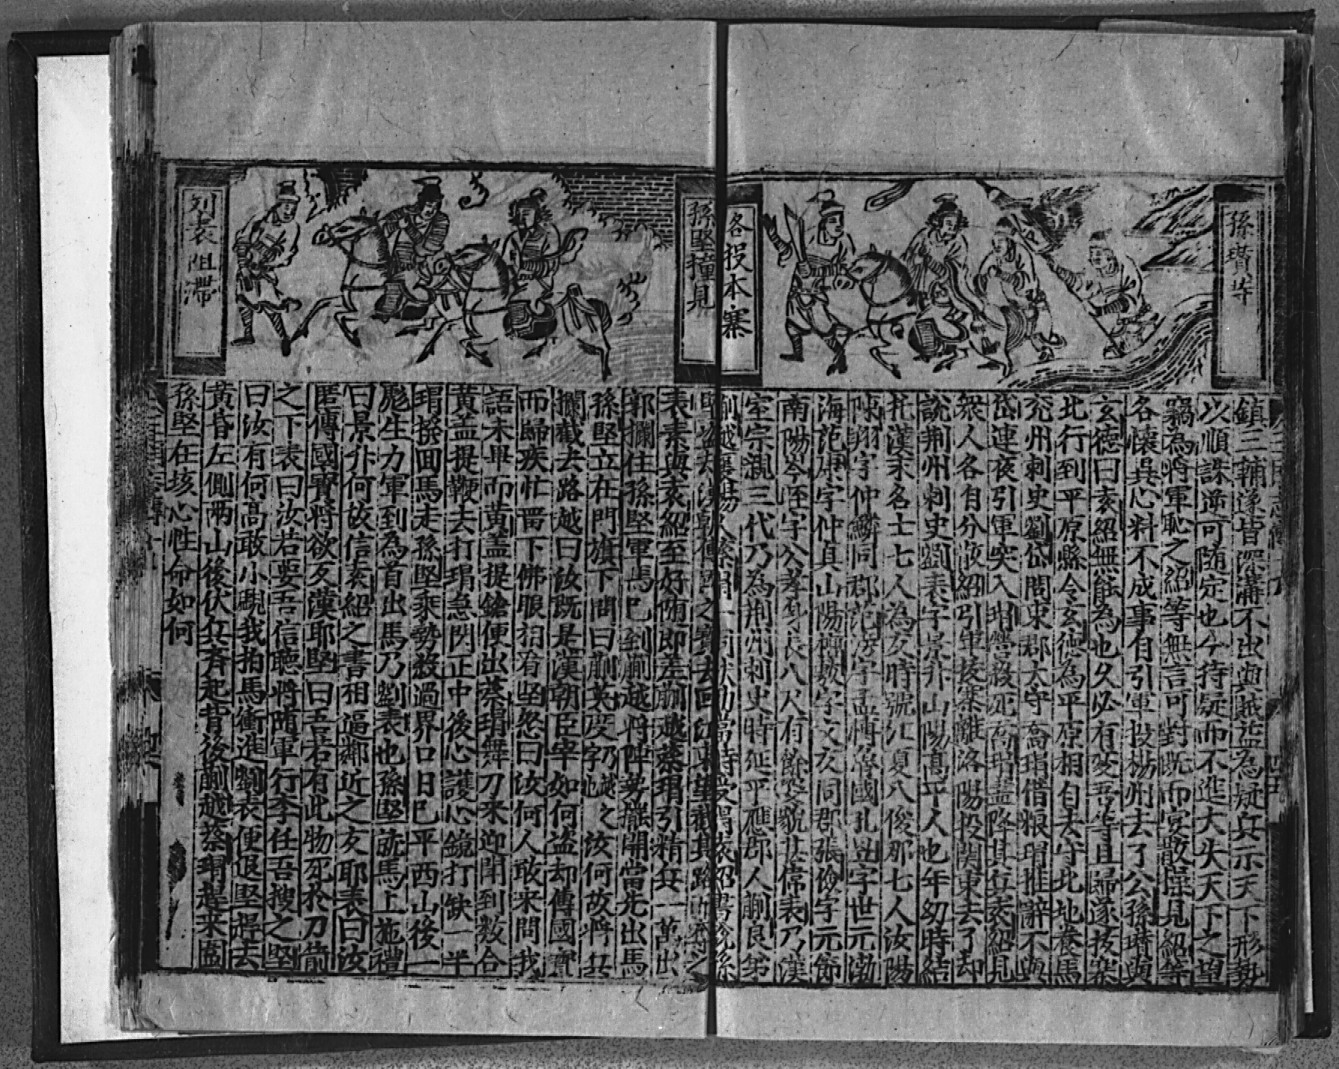 孫瓚等
各投本寨
鎮三輔遂皆深溝不出與越益為疑兵示天下形勢
以順誅逆可隨定也今持疑而不進大失天下之望
竊為將軍恥之紹等無言可對既而宴散操見紹等
各懷異心料不成事自引軍投楊州去了公孫瓚與
玄德曰袁紹無能為也久必有変吾等且歸遂拔寨
北行到平原縣令玄德為平原相自去守北地養馬
兖州刺史劉岱問東郡太守喬瑁借粮瑁推辭不與
岱連夜引軍突入瑁營殺死喬瑁盡降其兵袁紹見
衆人各自分散紹引軍拔寨離洛陽投関東去了却
說荆州刺史劉表字景升山陽高平人也年幼時結
托漢末名士七人為友時號江夏八俊那七人汝陽
陳翔字仲麟同郡范滂字孟博魯國孔昱字世元渤
海范康字仲真山陽檀敷字文友同郡張儉字元節
南陽岑晊字公孝身長八人有餘姿貌甚偉表乃漢
室宗親三代乃為荆州刺史時延平應郡人蒯良弟
蒯越襄陽人蔡瑁
孫堅撞見
列表阻滯
表素與袁紹至好隨即差蒯越蔡瑁引精兵一萬出
郭攔住孫堅軍馬已到蒯越将陣勢擺開當先出馬
孫堅立在門旗下問曰蒯英度字仍越之汝何故將兵
攔截去路越曰汝既是漢朝臣宰如何盗却傳國寳
而歸疾忙留下佛眼相看堅怒曰汝何人敢來問我
語未畢而黄盖提鎗便出蔡瑁舞刀来迎閗到数合
黄盖提鞭去打瑁急閃正中後心護心鏡打缺一半
瑁撥回馬走孫堅乘勢殺過界口日已平西山後一
彪生力軍到為首出馬乃劉表也孫堅就馬上施禮
曰景升何故信袁紹之書相逼鄰近之友耶表曰汝
匿傳國寳將欲反漢耶堅曰吾若有此物死於刀箭
之下表曰汝若要吾信聽將随軍行李任吾搜之堅
曰汝有何高敢小覷我拍馬衝進劉表便退堅趕去
黄昏左側兩山後伏兵齊起背後蒯越蔡瑁趕来困
孫堅在垓心性命如何